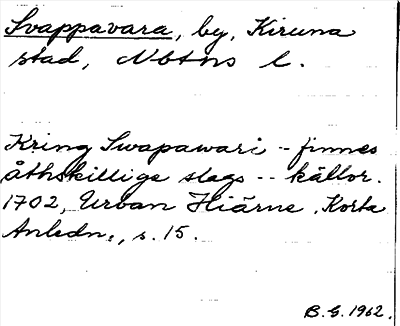 Svappavara, by, Kiruna
stad, Nbtns l.
Kring Swapawari -- finnes
åthskillige slags -- källor.
1702, Urban Hiärne, Korta
Anledn., s. 15.
B.G. 1962.